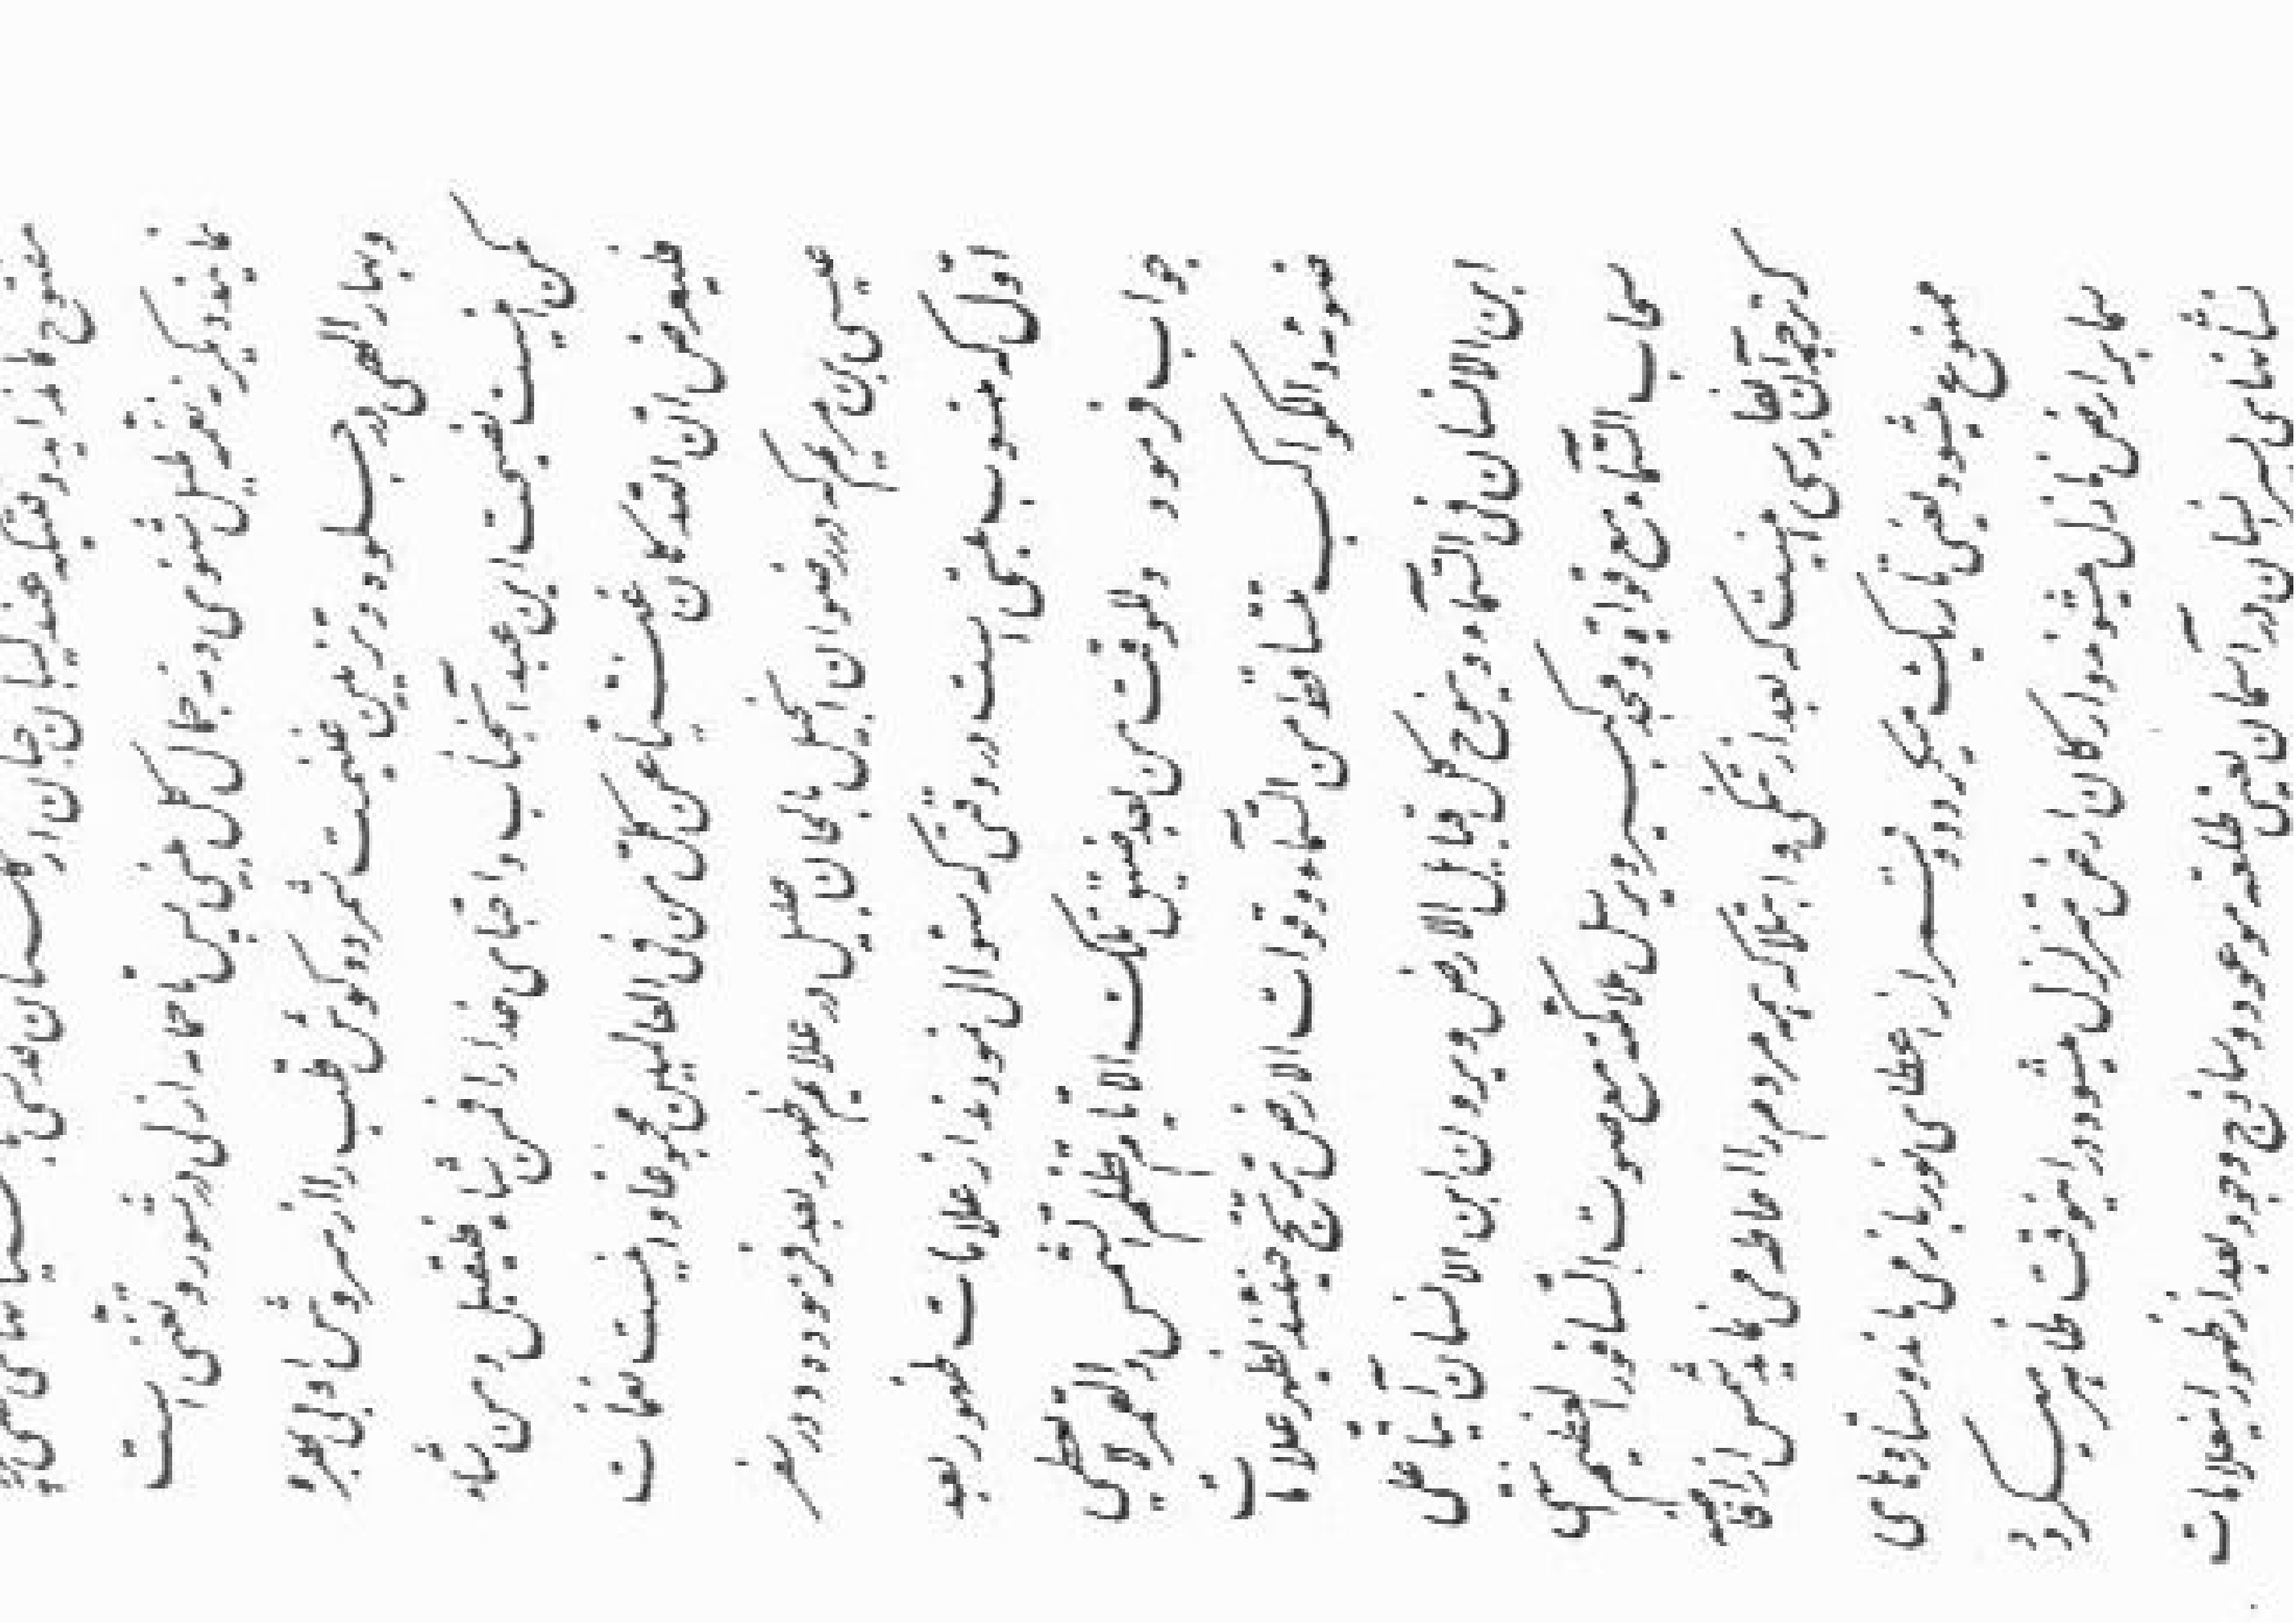 جنان از گلستان قدسی
نمایند دیگر نه نغمه بلبل شنوی و نه جمال گل بینی پس تا حمامه ازلی در شور و تغنی است
و بهار الهی در جلوه و تزیین غنیمت شمرده گوش قلب را از سروش او بی بهره
مکن اینست نصیحت این عبد آنجناب و احبای خدا را فمن شاء فلیقبل و من شاء
فلیعرض ان الله کان غنیا عن کل من فی العالمین و اینست نغمات
عیسی بن مریم که در رضوان انجیل بالحان جلیل در علائم ظهور بعد فرموده در سفر
اول که منسوب بمتی است در وقتی که سئوال نمودند از علامات ظهور بعد
جواب فرمود وللوقت من بعد ضیق تلک الایام تظلم الشمس والقمر لا یعطی
ضوئه و الکواکب تتساقط من السمآء و قوات الارض ترتج حینئذ یظهر علامات
ابن الانسان فی السمآء و ینوح کل قبایل الارض و یرون ابن الانسان آتیا علی
سحاب السمآء مع قوات و مجد کبیر و یرسل ملائکته مع صوت السافور العظیم انتهی
که ترجمه آن بفارسی اینست که بعد از تنگی و ابتلا که همه مردم را احاطه می نماید شمس از افاضه
ممنوع میشود یعنی تاریک میگردد و قمر از اعطای نور بازمی ماند و ستارهای
سماء بر ارض نازل میشوند و ارکان ارض متزلزل میشود در اینوقت ظاهر میگردد
نشانهای پسر انسان در آسمان یعنی طلعت موعود و ساذج وجود بعد از ظهور اینعلامات